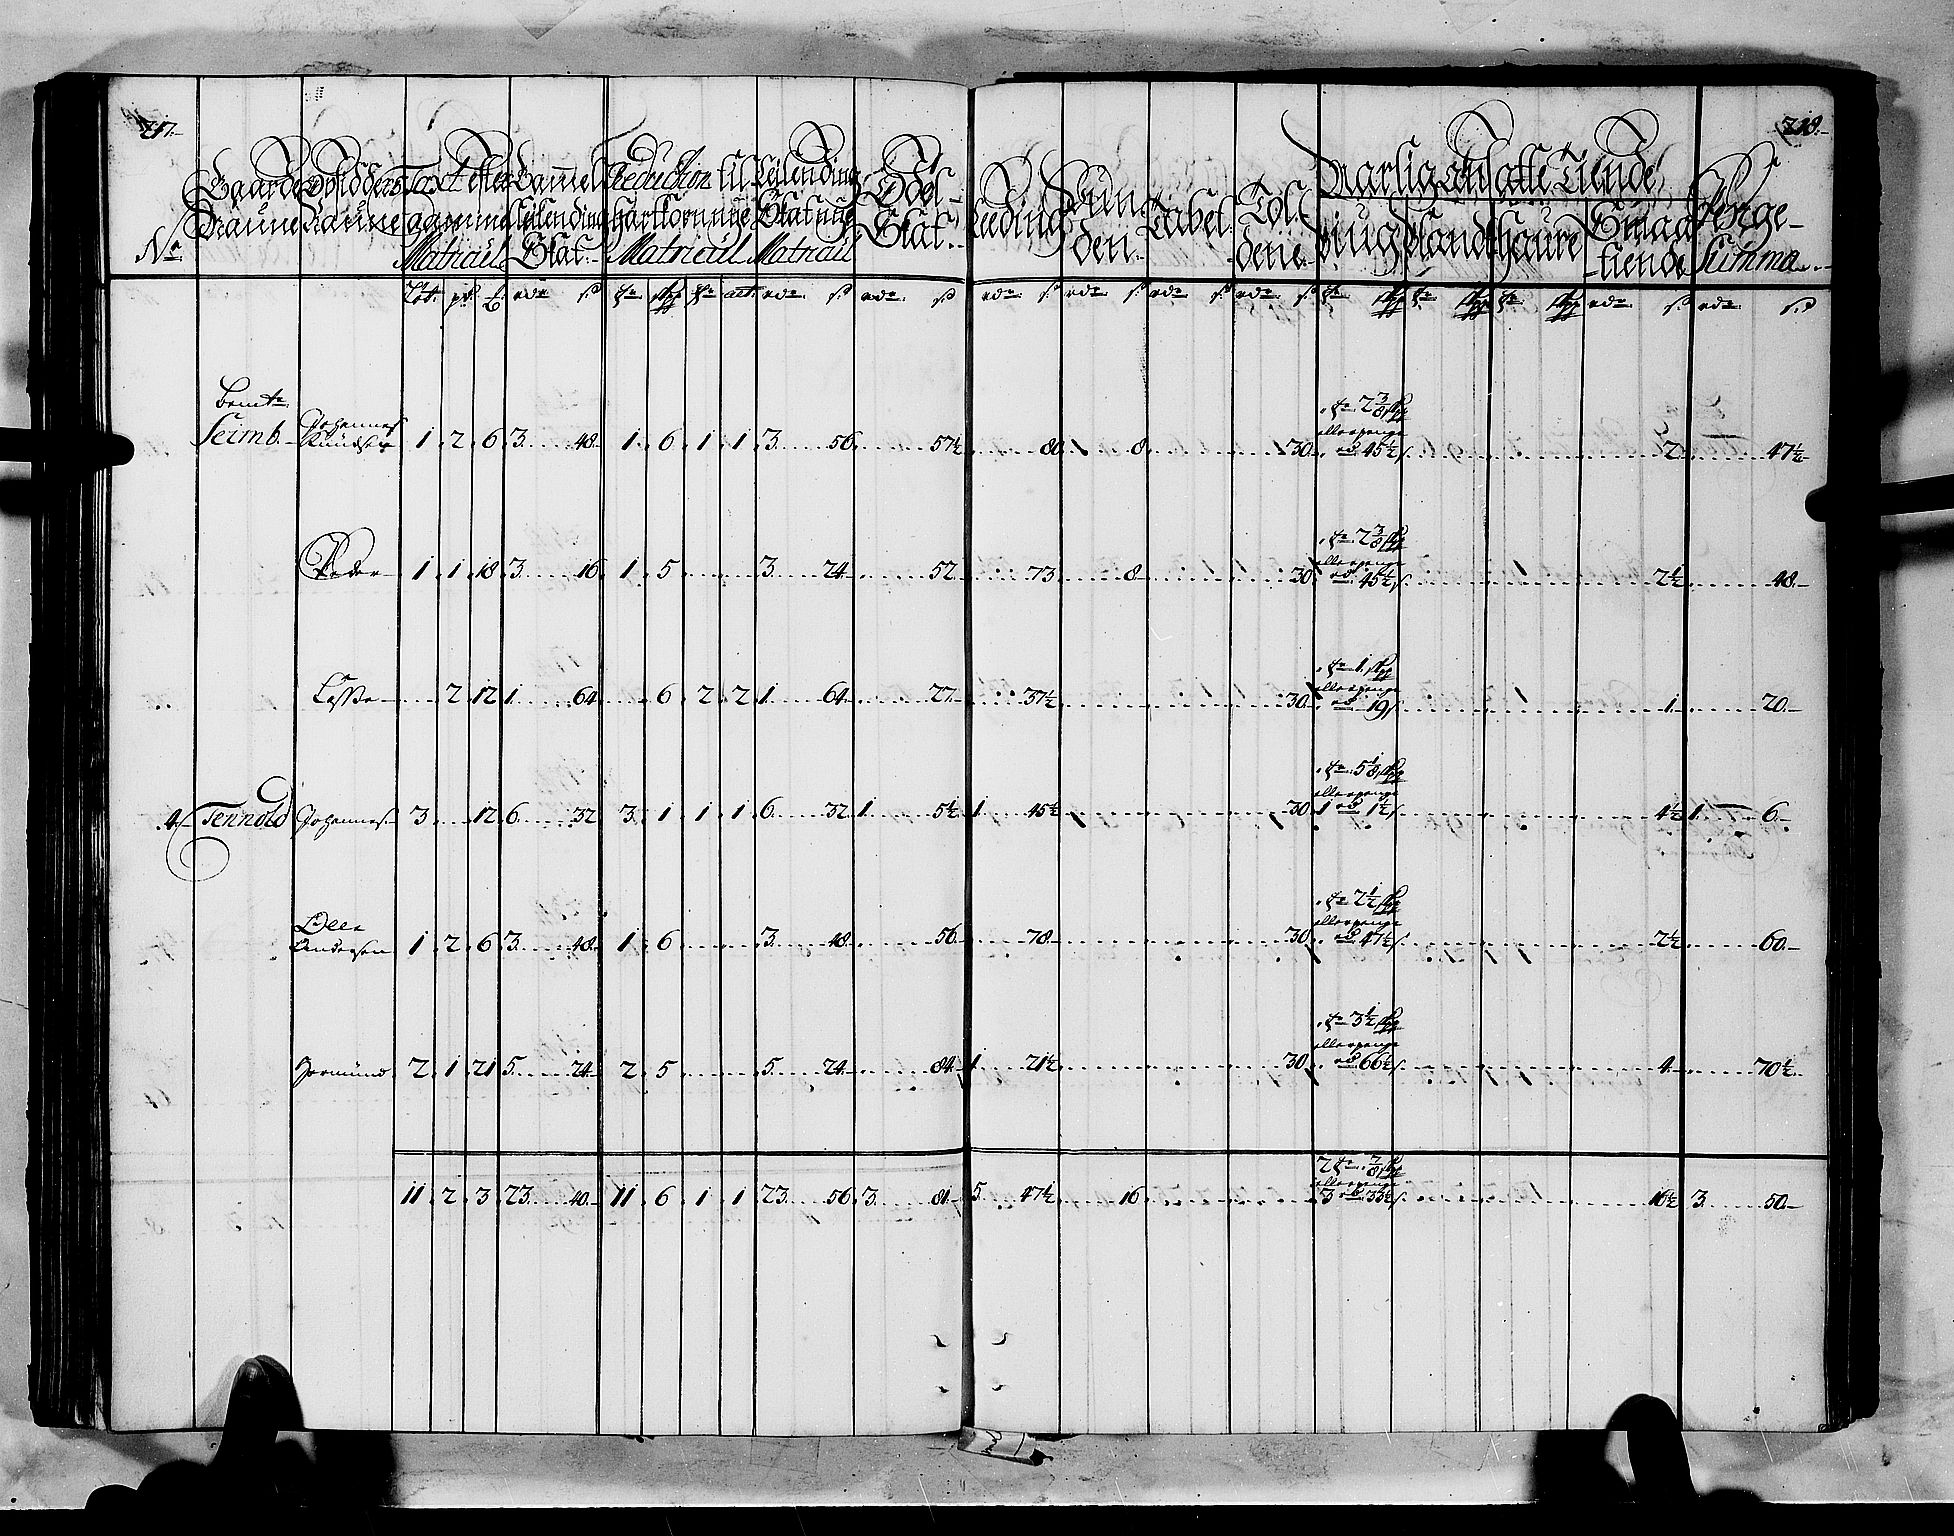 217.
218.
Aarlig Ansatte Tiende
Gaarde Nafne
Taxt efter gamme Matricül
Gammel Leilending Skat
Reduction til hartkorn nÿe Matricül
Leilending Skat nÿe Matricül
Odel Skat
Leeding
Tolldene
Smaa tiende
Penge Summa
No
Bemte Seimb. Johannes Knudsen 1. 2. 6. 3. 48. 1. 6. 1. 1. 3. 56. 57½ 80 8. 30 2 3/8 45½ 2. 47½
Peder 1. 1. 18. 3. 16 1. 5 3. 24. 52 73 8. 30 2 3/8 45½ 2½ 48.
Lasse 2. 12 1. 64 6 2. 2. 1. 64. 27. 37½ 30 1. 19 1. 20.
4 Tennold Johannes 3. 12. 6. 32 3. 1 1. 1. 6. 32. 1. 5½ 1. 45½ 30 5 1/8 1 1½ 4½ 1. 6.
Olle Andersen 1. 2. 6. 3. 48. 1. 6. 3. 48. 56. 78. 30 2½ 47½ 2½ 60.
Germünd 2. 1. 21. 5. 24. 2. 5 5. 24. 84 1. 21½ 30 3½ 66½ 4. 70½
11. 2. 3. 23. 40. 11. 6. 1. 1. 23. 56. 3. 81. 5. 47½ 16 2 7/8 3 33½ 16½ 3. 50.